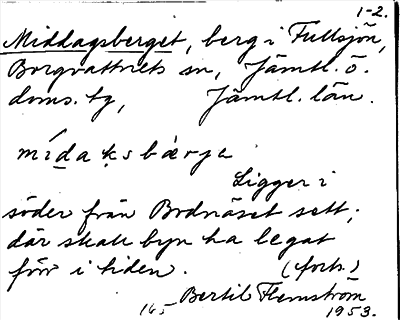 1-2.
Middagsberget, berg i Fullsjön,
Borgvattnets sn, Jämtl. ö.
doms. tg, Jämtl. län.
mídaksbærje
Ligger i
söder från Bodnäset sett;
där skall byn ha legat
förr i tiden. (forts.)
165 Bertil Flemström
1953.